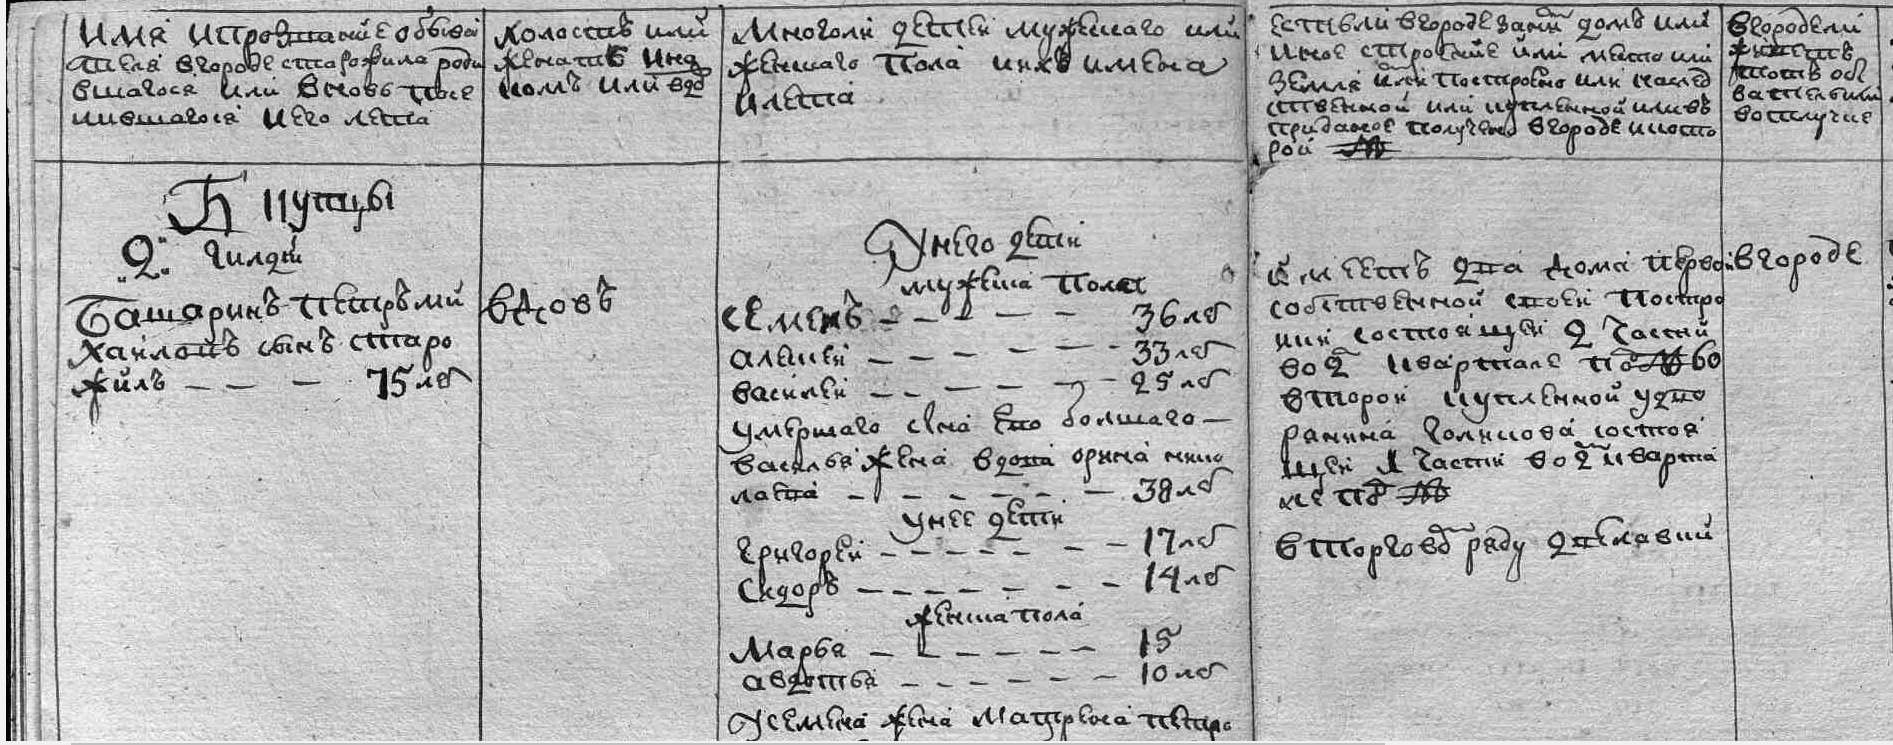 Имя и прозвание обыва
теля в городе старожила роди
вшагося или вновь посе
лившагося и его лета
холостъ или
женатъ и на
комъ или вдо
Многоли детей мужескаго или
женскаго пола и ихъ имена
и лета
Есть ли в городе за ним домъ или
иное строение или место или
земля им построено или наслед
ственной или купленной или въ
приданое получено в городе и кото
рой №
в городе ли
живетъ
тотъ обы
ватель или
в отлучке
Б купцы
2 гилдии
Башаринъ Петръ Ми
хайловъ сынъ старо
жилъ — — — 75 летъ
вдовъ
У него дети
мужеска пола
Семенъ — — — — — 36 летъ
Алексей — — — — — 33 летъ
Василей — — — — — 25 летъ
умершаго сына ево болшаго
Василья жена вдова Орина Нико
лаева — — — — — 38 летъ
у нее дети
Григорей — — — — — 17 летъ
Сидоръ — — — — — 14 летъ
женска пола
Марья — — — — — 15
Авдотья — — — — — 10 летъ
У Семена жена Матрена Петро
имеетъ два дома первой
собственной своей построй
ки состоящей 2 части
во 2м квартале под № 60
второй купленной у дво
ранина Голикова состоя
щей 1 части во 2м кварта
ле под №
в торговом ряду две лавки
в городе